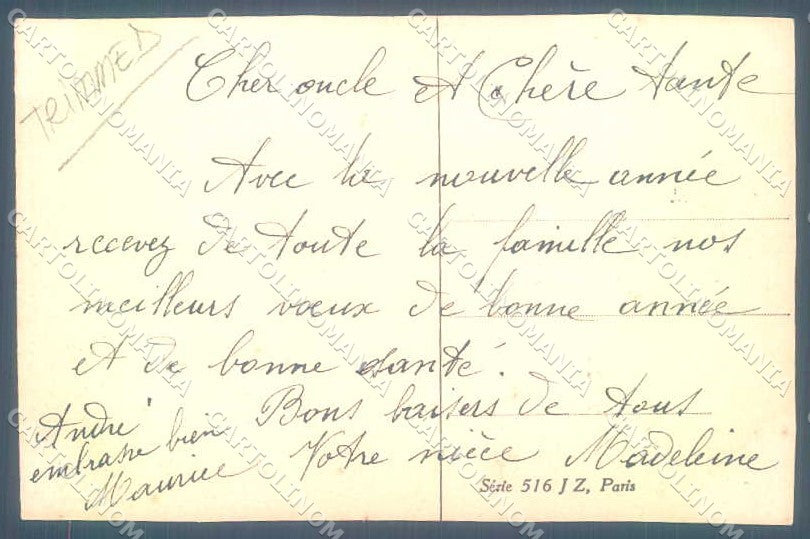 TRIMMED
Cher oncle et Chère tante
Avec la nouvelle année
recevez de toute la famille nos
meilleurs voeux de bonne année
et de bonne santé.
Bons baisers de tous
Votre nièce Madeleine
André
embrasse bien
Maurice
Série 516 J Z, Paris
CARTOLINOMANIA